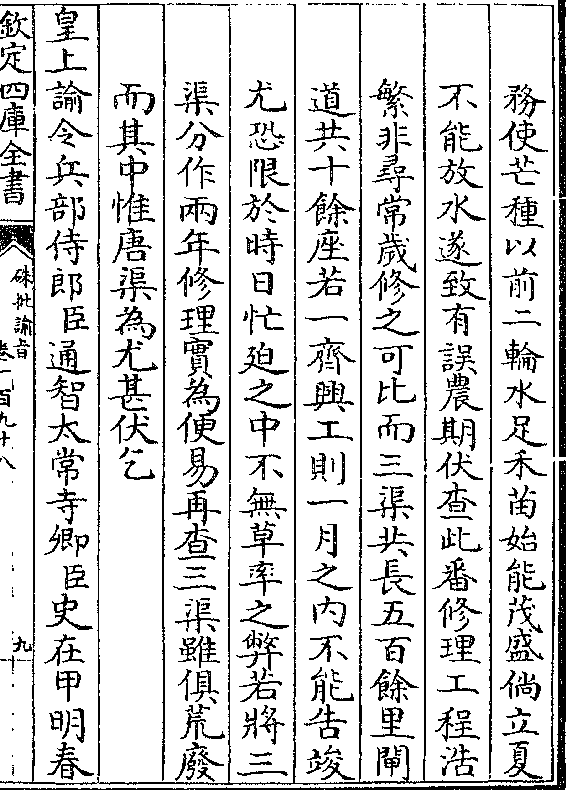 務使芒種以前二輪水足禾苗始能茂盛倘立夏
不能放水遂致有誤農期伏查此番修理工程浩
繁非尋常歲修之可比而三渠共長五百餘里閘
道共十餘座若一齊興工則一月之內不能告竣
尤恐限於時日忙廹之中不無草率之弊若將三
渠分作兩年修理實為便易再查三渠雖俱荒廢
而其中惟唐渠為尤甚伏乞
皇上諭令兵部侍郎臣通智太常寺卿臣史在甲明春
欽定四庫全書
硃批諭旨
卷一百九十八
九